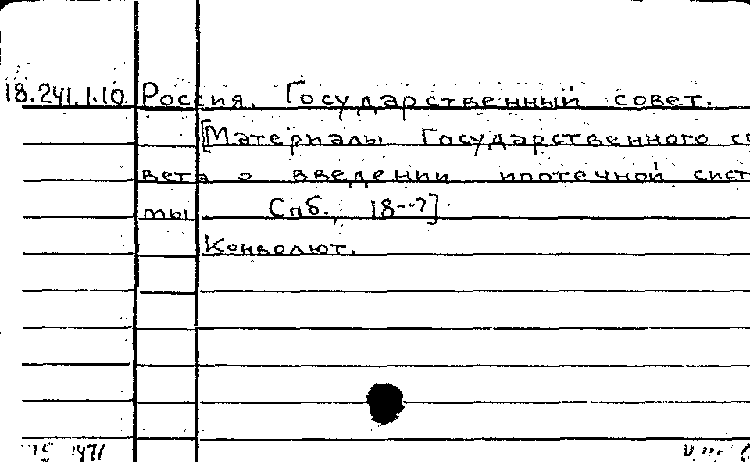 18.241.1.10 Россия. Государственный совет.
[Материалы Государственного со
вета о введении ипотечной систе
мы Спб., 18--?]
Конволют.